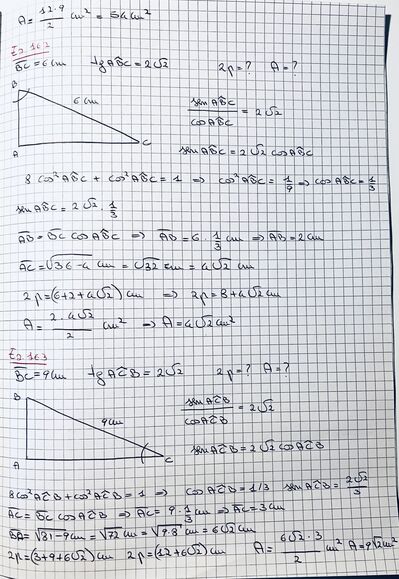 A = 12·9/2 cm² = 54 cm²
Es. 162
BC = 6 cm tg AB̂C = 2√2 2p = ? A = ?
B
6 cm
A C
sen AB̂C / cos AB̂C = 2√2
sen AB̂C = 2√2 cos AB̂C
8 cos² AB̂C + cos² AB̂C = 1 ⇒ cos² AB̂C = 1/9 ⇒ cos AB̂C = 1/3
sen AB̂C = 2√2 · 1/3
AB = BC cos AB̂C ⇒ AB = 6 · 1/3 cm ⇒ AB = 2 cm
AC = √36-4 cm = √32 cm = 4√2 cm
2p = (6+2+4√2) cm ⇒ 2p = 8+4√2 cm
A = 2·4√2/2 cm² ⇒ A = 4√2 cm²
Es. 163
BC = 9 cm tg AĈB = 2√2 2p = ? A = ?
B
9 cm
A C
sen AĈB / cos AĈB = 2√2
sen AĈB = 2√2 cos AĈB
8 cos² AĈB + cos² AĈB = 1 ⇒ cos AĈB = 1/3 sen AĈB = 2√2/3
AC = BC cos AĈB ⇒ AC = 9 · 1/3 cm ⇒ AC = 3 cm
BA = √81-9 cm = √72 cm = √9·8 cm = 6√2 cm
2p = (3+9+6√2) cm 2p = (12+6√2) cm A = 6√2·3/2 cm² A = 9√2 cm²